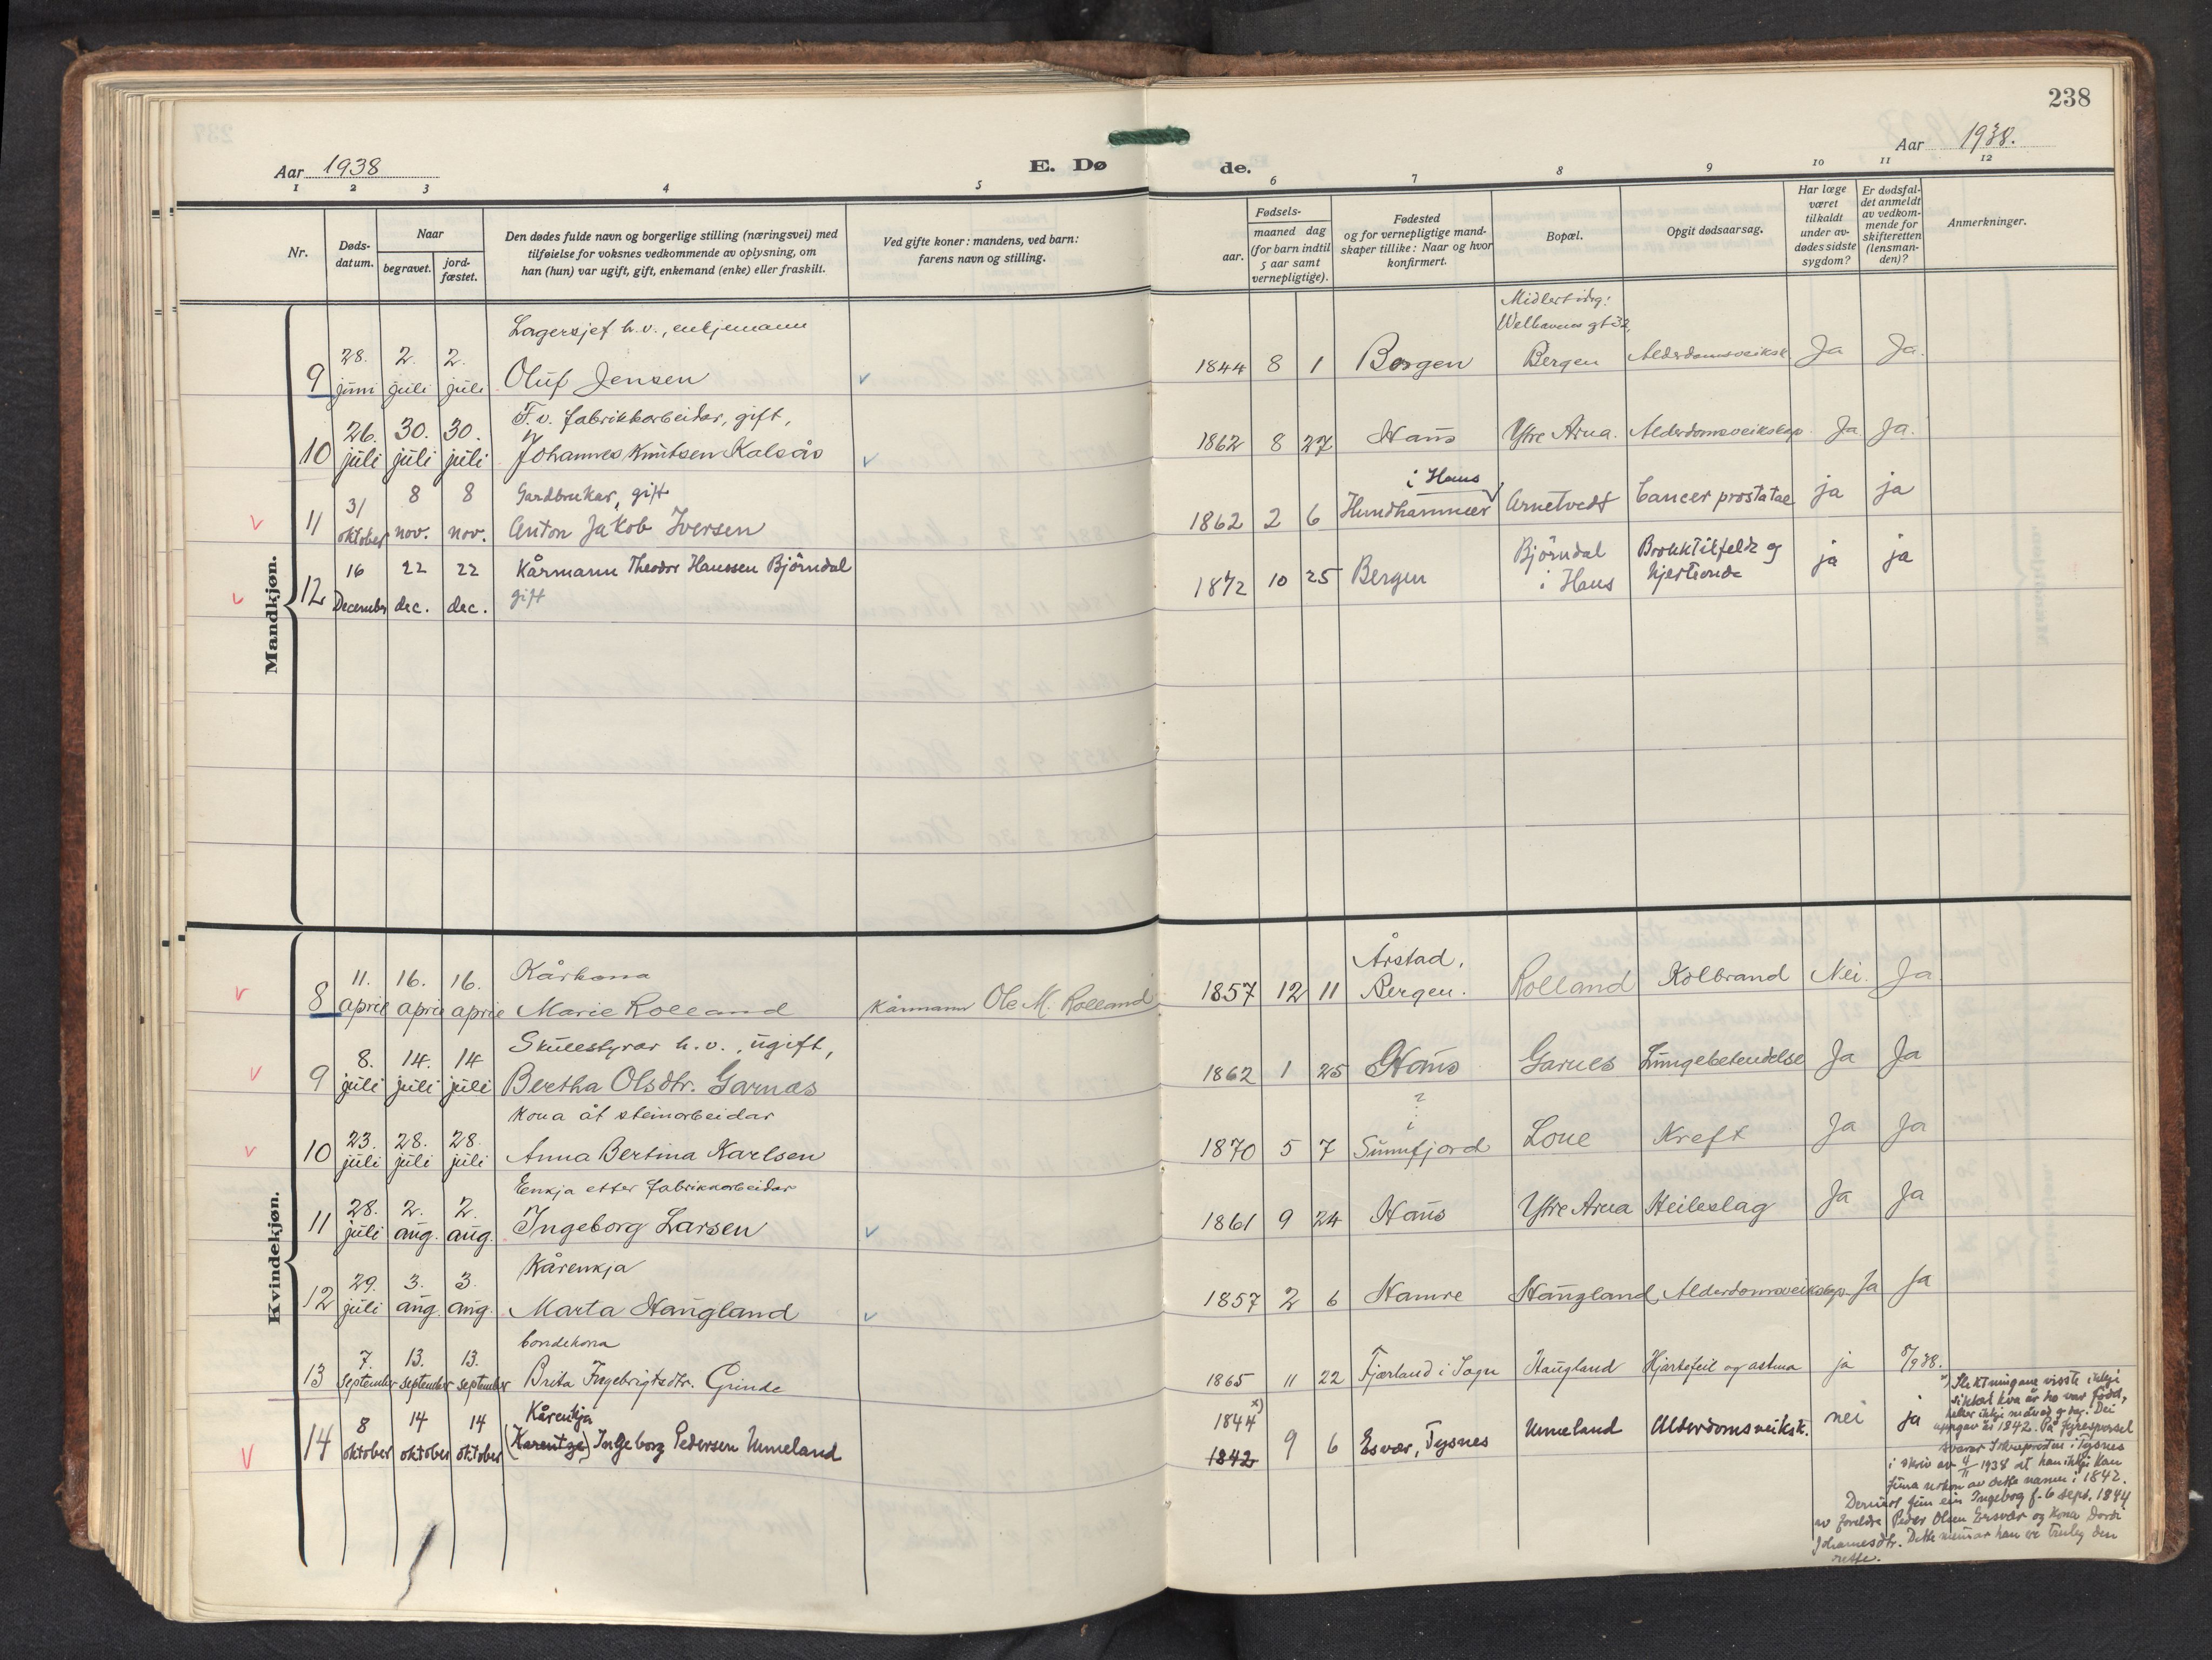 238
Aar 1938
E. Dø
de.
Aar 1938.
1 2 3 4 5 6 7 8 9 10 11 12
Nr.
Døds-
datum.
Naar
begravet.
jord-
fæstet.
Den dødes fulde navn og borgerlige stilling (næringsvei) med
tilføielse for voksnes vedkommende av oplysning, om
han (hun) var ugift, gift, enkemand (enke) eller fraskilt.
Ved gifte koner: mandens, ved barn:
farens navn og stilling.
Fødsels-
aar.
maaned dag
(for barn indtil
5 aar samt
vernepligtige).
Fødested
og for vernepligtige mand-
skaper tillike: Naar og hvor
konfirmert.
Bopæl.
Opgit dødsaarsag.
Har læge
været
tilkaldt
under av-
dødes sidste
sygdom?
Er dødsfal-
det anmeldt
av vedkom-
mende for
skifteretten
(lensman-
den)?
Anmerkninger.
Mandkjøn.
Lagersjef h.v., enkjemann
Midlertidig:
Welhavens gt 32,
9 28. juni 2. juli 2. juli Oluf Jensen 1844 8 1 Bergen Bergen Alderdomsveiksk. Ja Ja.
F.v. fabrikkarbeidar, gift,
10 26. juli 30. juli 30. juli Johannes Knutsen Kalsås 1862 8 27 Haus Ytre Arna. Alderdomsveikskap. Ja. Ja.
Gardbrukar, gift
i Haus
11 31 oktober 8 nov. 8 nov. Anton Jakob Iversen 1862 2 6 Hundhammer Arnetvedt Cancer prostatae ja ja
12 16 December 22 dec. 22 dec. Kårmann Theodor Hanssen Björndal
gift
1872 10 25 Bergen Björndal
i Haus
Brokktilfelde og
hjerteonde
ja ja
Kvindekjøn.
Kårkona
Årstad,
8 11. april 16. april 16. april Marie Rolland Kårmann Ole M. Rolland 1857 12 11 Bergen. Rolland Kolbrand Nei. Ja.
Skulestyrar h.v., ugift,
9 8. juli 14. juli 14 juli Bertha Olsdtr. Garnæs 1862 1 25 Haus Garnes Lungebetendelse Ja Ja
Kona åt steinarbeidar
?
i
10 23. juli 28. juli 28. juli Anna Bertina Karlsen 1870 5 7 Sunnfjord Lone Kreft Ja Ja
Enkja etter fabrikkarbeidar
11 28. juli 2. aug. 2. aug. Ingeborg Larsen 1861 9 24 Haus Ytre Arna Heileslag Ja Ja
Kårenkja
12 29. juli 3. aug. 3. aug. Marta Haugland 1857 2 6 Hamre Haugland, Alderdomsveikskap Ja Ja
bondekona
13 7. september 13. september 13. september Brita Ingebrigtsdtr. Grinde 1865 11 22 Fjærland i Sogn Haugland Hjartefeil og astma ja 8/9 38.
Kårenkja
14 8 oktober 14 oktober 14 oktober (Karentze) Ingeborg Pedersen Unneland x) 1844 1842 9 6 Esvær, Tysnes Unneland Alderdomsveiksk. nei ja
x) Slektningane visste ikkje
sikkert kva år ho var född,
heller ikkje månad og dag. Dei
uppgav år 1842. På fyrespursel
svarar Sokneprosten i Tysnes
i skriv av 4/11 1938 at han ikkje kan
finna nokon av dette namn i 1842.
Derimot finn ein Ingeborg f. 6 sept. 1844
av foreldre Peder Olsen Ersvær og kona Dordi
Johannesdtr. Dette meinar han er truleg den
rette.